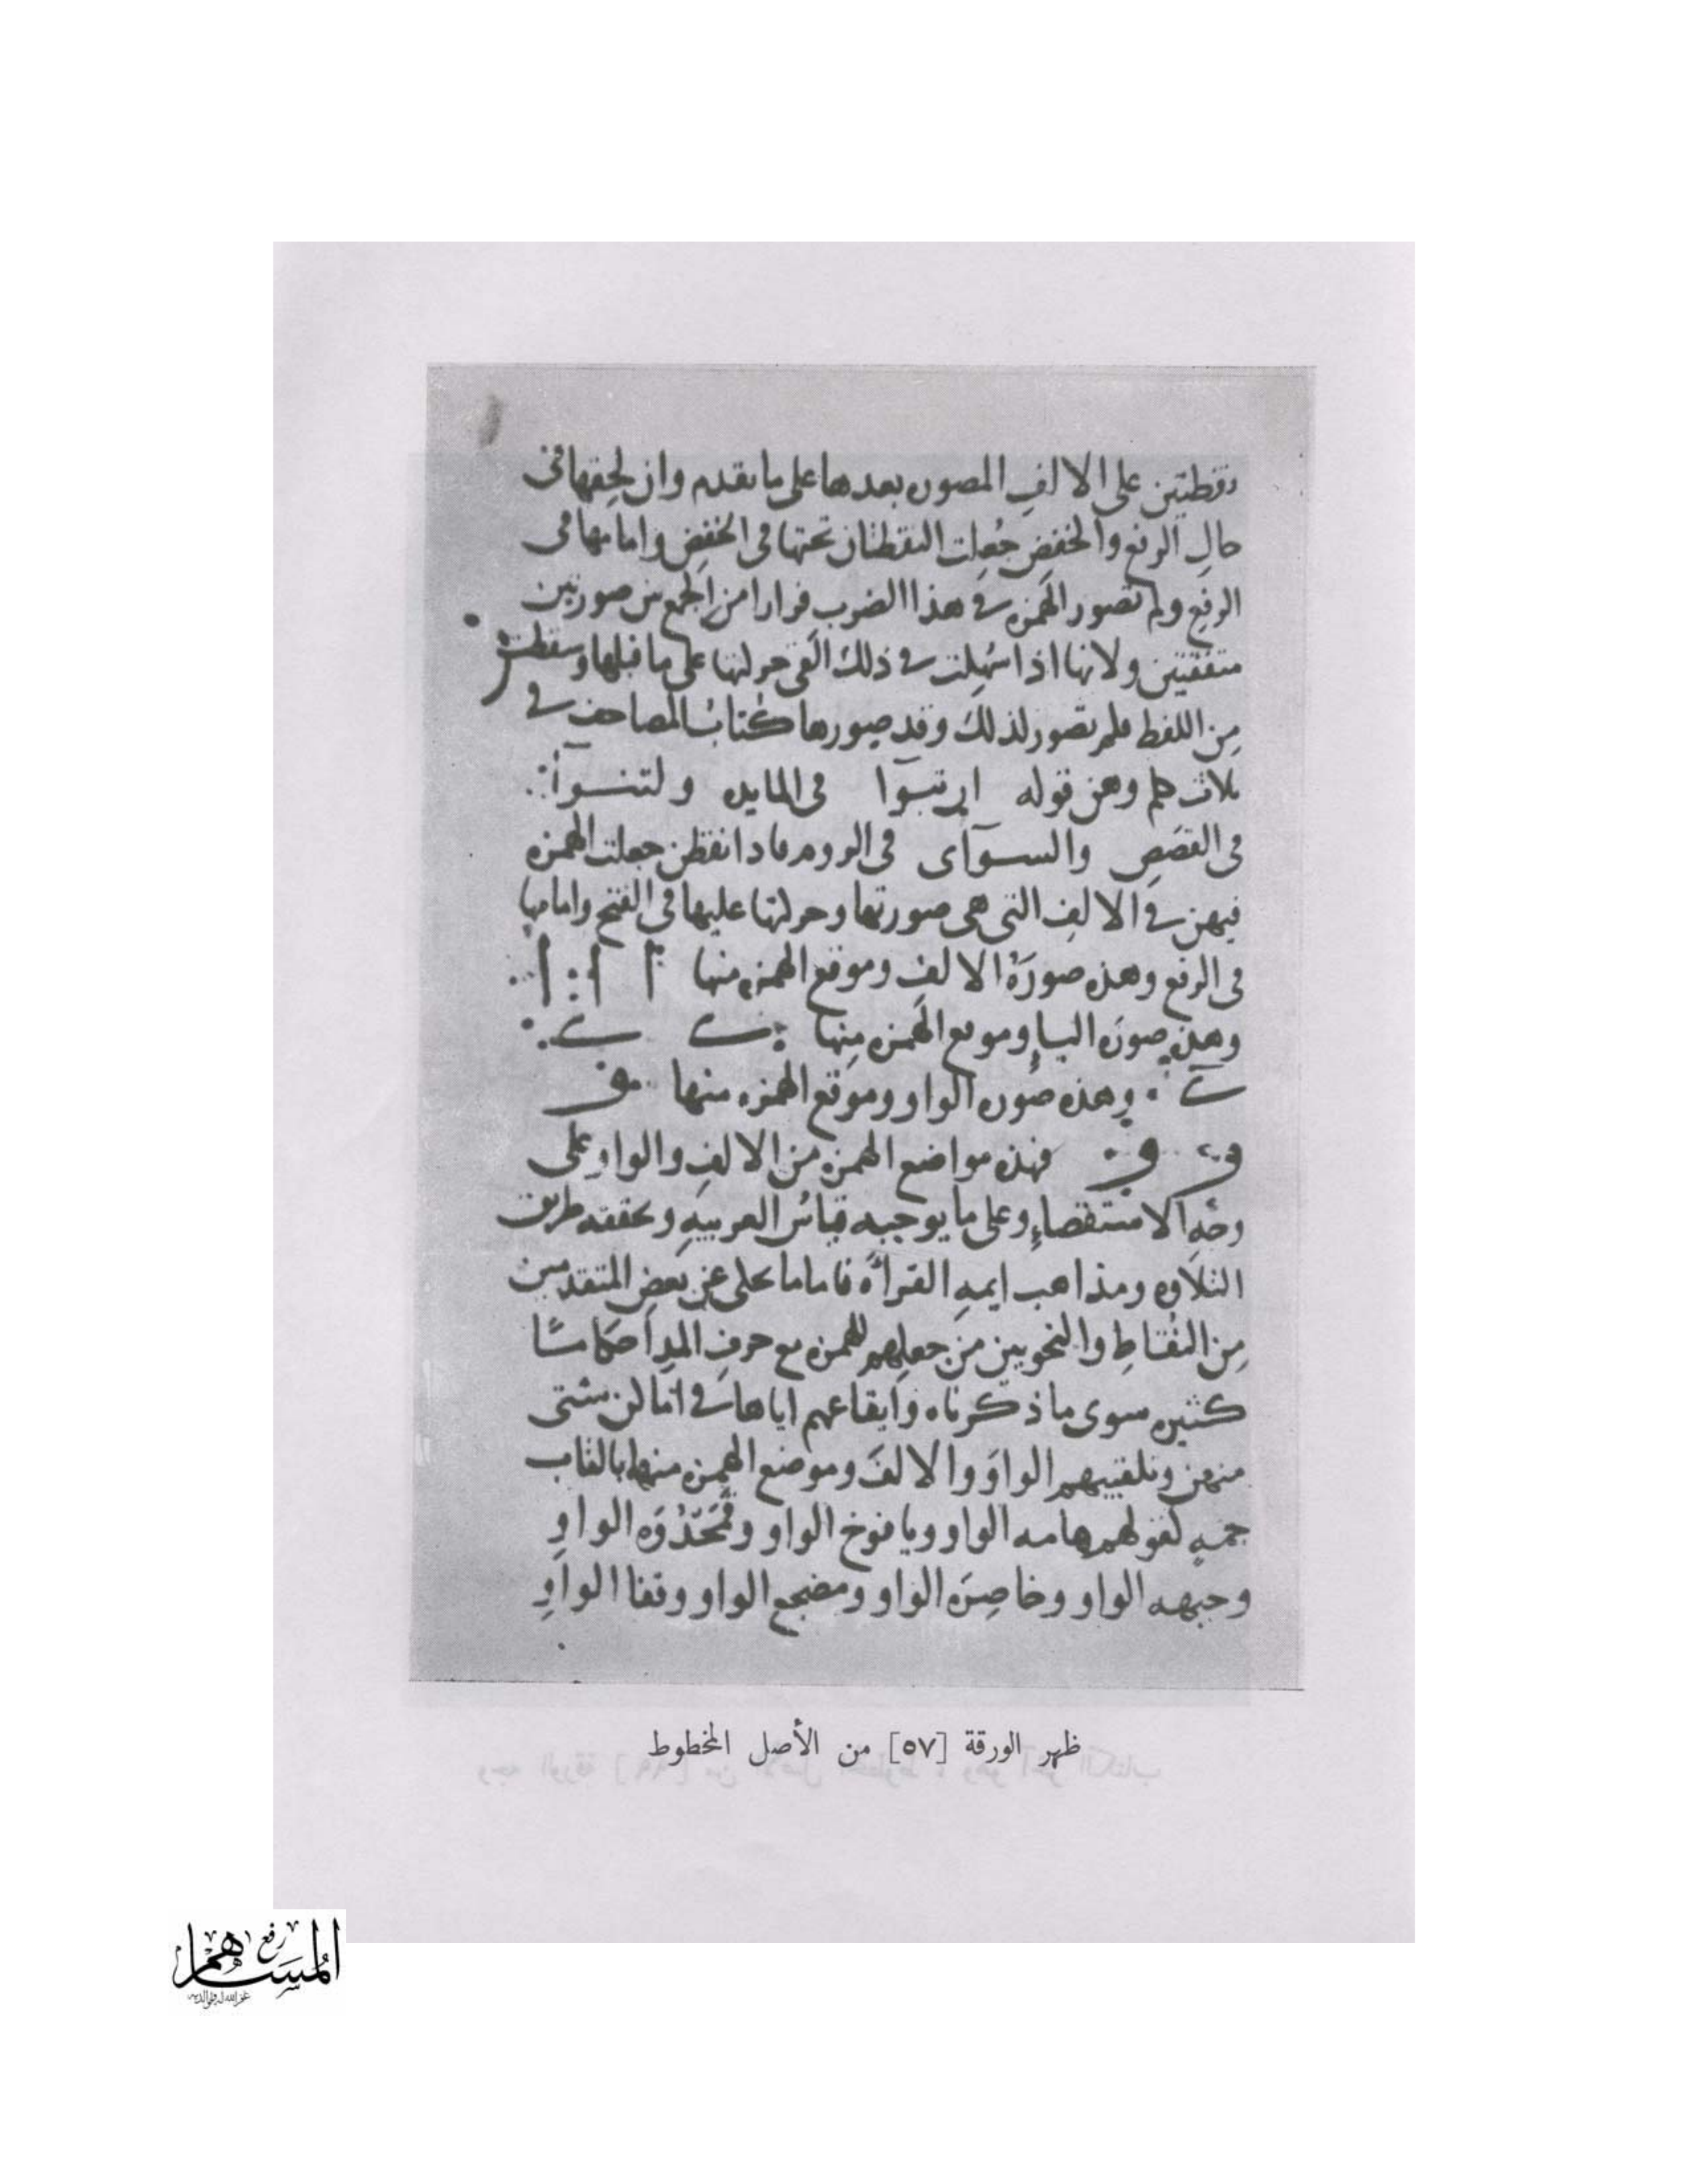 نقطتين على الالف المصوره بعدها على ما تقدم وان لحقها في
حال الرفع والخفض جُعلت النقطتان تحتها في الخفض وامامها في
الرفع ولم تصور الهمزه في هذا الضرب فرارا من الجمع بين صورتين
متفقتين ولانها اذا سُهلت في ذلك القى حركتها على ما قبلها وسقطت
مِن اللفظ فلم تصور لذلك وقد صورها كُتّابُ المصاحف في
ثلاث كلم وهن قوله ان تبوآ في المايده ولتنوآ
في القصَصِ والسوآى في الروم فاذا نقطن جعلت الهمزه
فيهن في الالف التي هي صورتها وحركتها عليها في الفتح وامامها
في الرفع وهذه صورَةُ الالف وموقع الهمزه منها
وهذه صوره الياء وموقع الهمزه مِنها
وهذه صوره الواو وموقع الهمزه منها
فهذه مواضع الهمزه من الالف والواو على
وجهِ الاستقصاءِ وعلى ما يوجبه قياسُ العربيهِ وتحققه طريق
التلاوه ومذاهب ايمهِ القراءَه فاما ما حكى عن بعض المتقدمين
مِن النُقاطِ والنحويين من جعلهم للهمزه مع حرف المد احكاما
كثيره سوى ما ذكرناه وايقاعهم اياها في اماكن شتى
منهن وتلقيبهم الواوَ والالفَ وموضع الهمزه منهما بالقاب
جمهٍ كقولهم هامه الواو ويافوخ الواو وقَمَحْدُوَه الواوِ
وجبهه الواو وخاصِرَه الواو ومضجع الواو وقفا الواوِ
ظهر الورقة [٥٧] من الأصل المخطوط
رفع
المساهم
غفر الله له ولوالديه